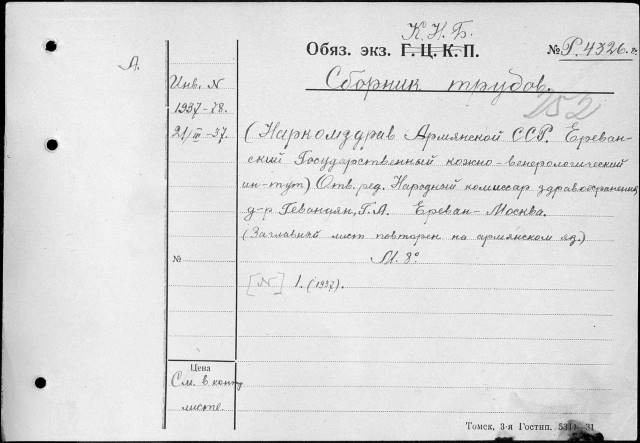 К. Н. Б.
Обяз. экз. Г. Ц. К. П. № Р. 4326 г.
А.
Сборник трудов.
252
Инв. N
1937-78.
21/III-37.
(Наркомздрав Армянской ССР. Ереван-
ский Государственный кожно-венерологический
ин-тут) Отв. ред. Народный комиссар здравоохранения
д-р Геванцян, Г. А. Ереван-Москва.
(Заглавный лист повторен на армянском яз.)
№ М. 8°
[N] 1. (1937).
Цена
См. в конц
листе.
Томск, 3-я Гостип. 5310-31